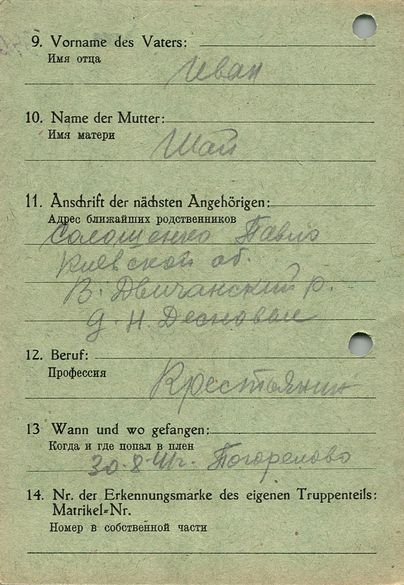 9. Vorname des Vaters:
Имя отца
Иван
10. Name der Mutter:
Имя матери
Шай
11. Anschrift der nächsten Angehörigen:
Адрес ближайших родственников
Солошенко Павло
Киевской об.
В. Двичанский р.
д. Н.
12. Beruf:
Профессия
Крестьянин
13 Wann und wo gefangen:
Когда и где попал в плен
30.8.41г. Погорелово
14. Nr. der Erkennungsmarke des eigenen Truppenteils:
Matrikel=Nr.
Номер в собственной части